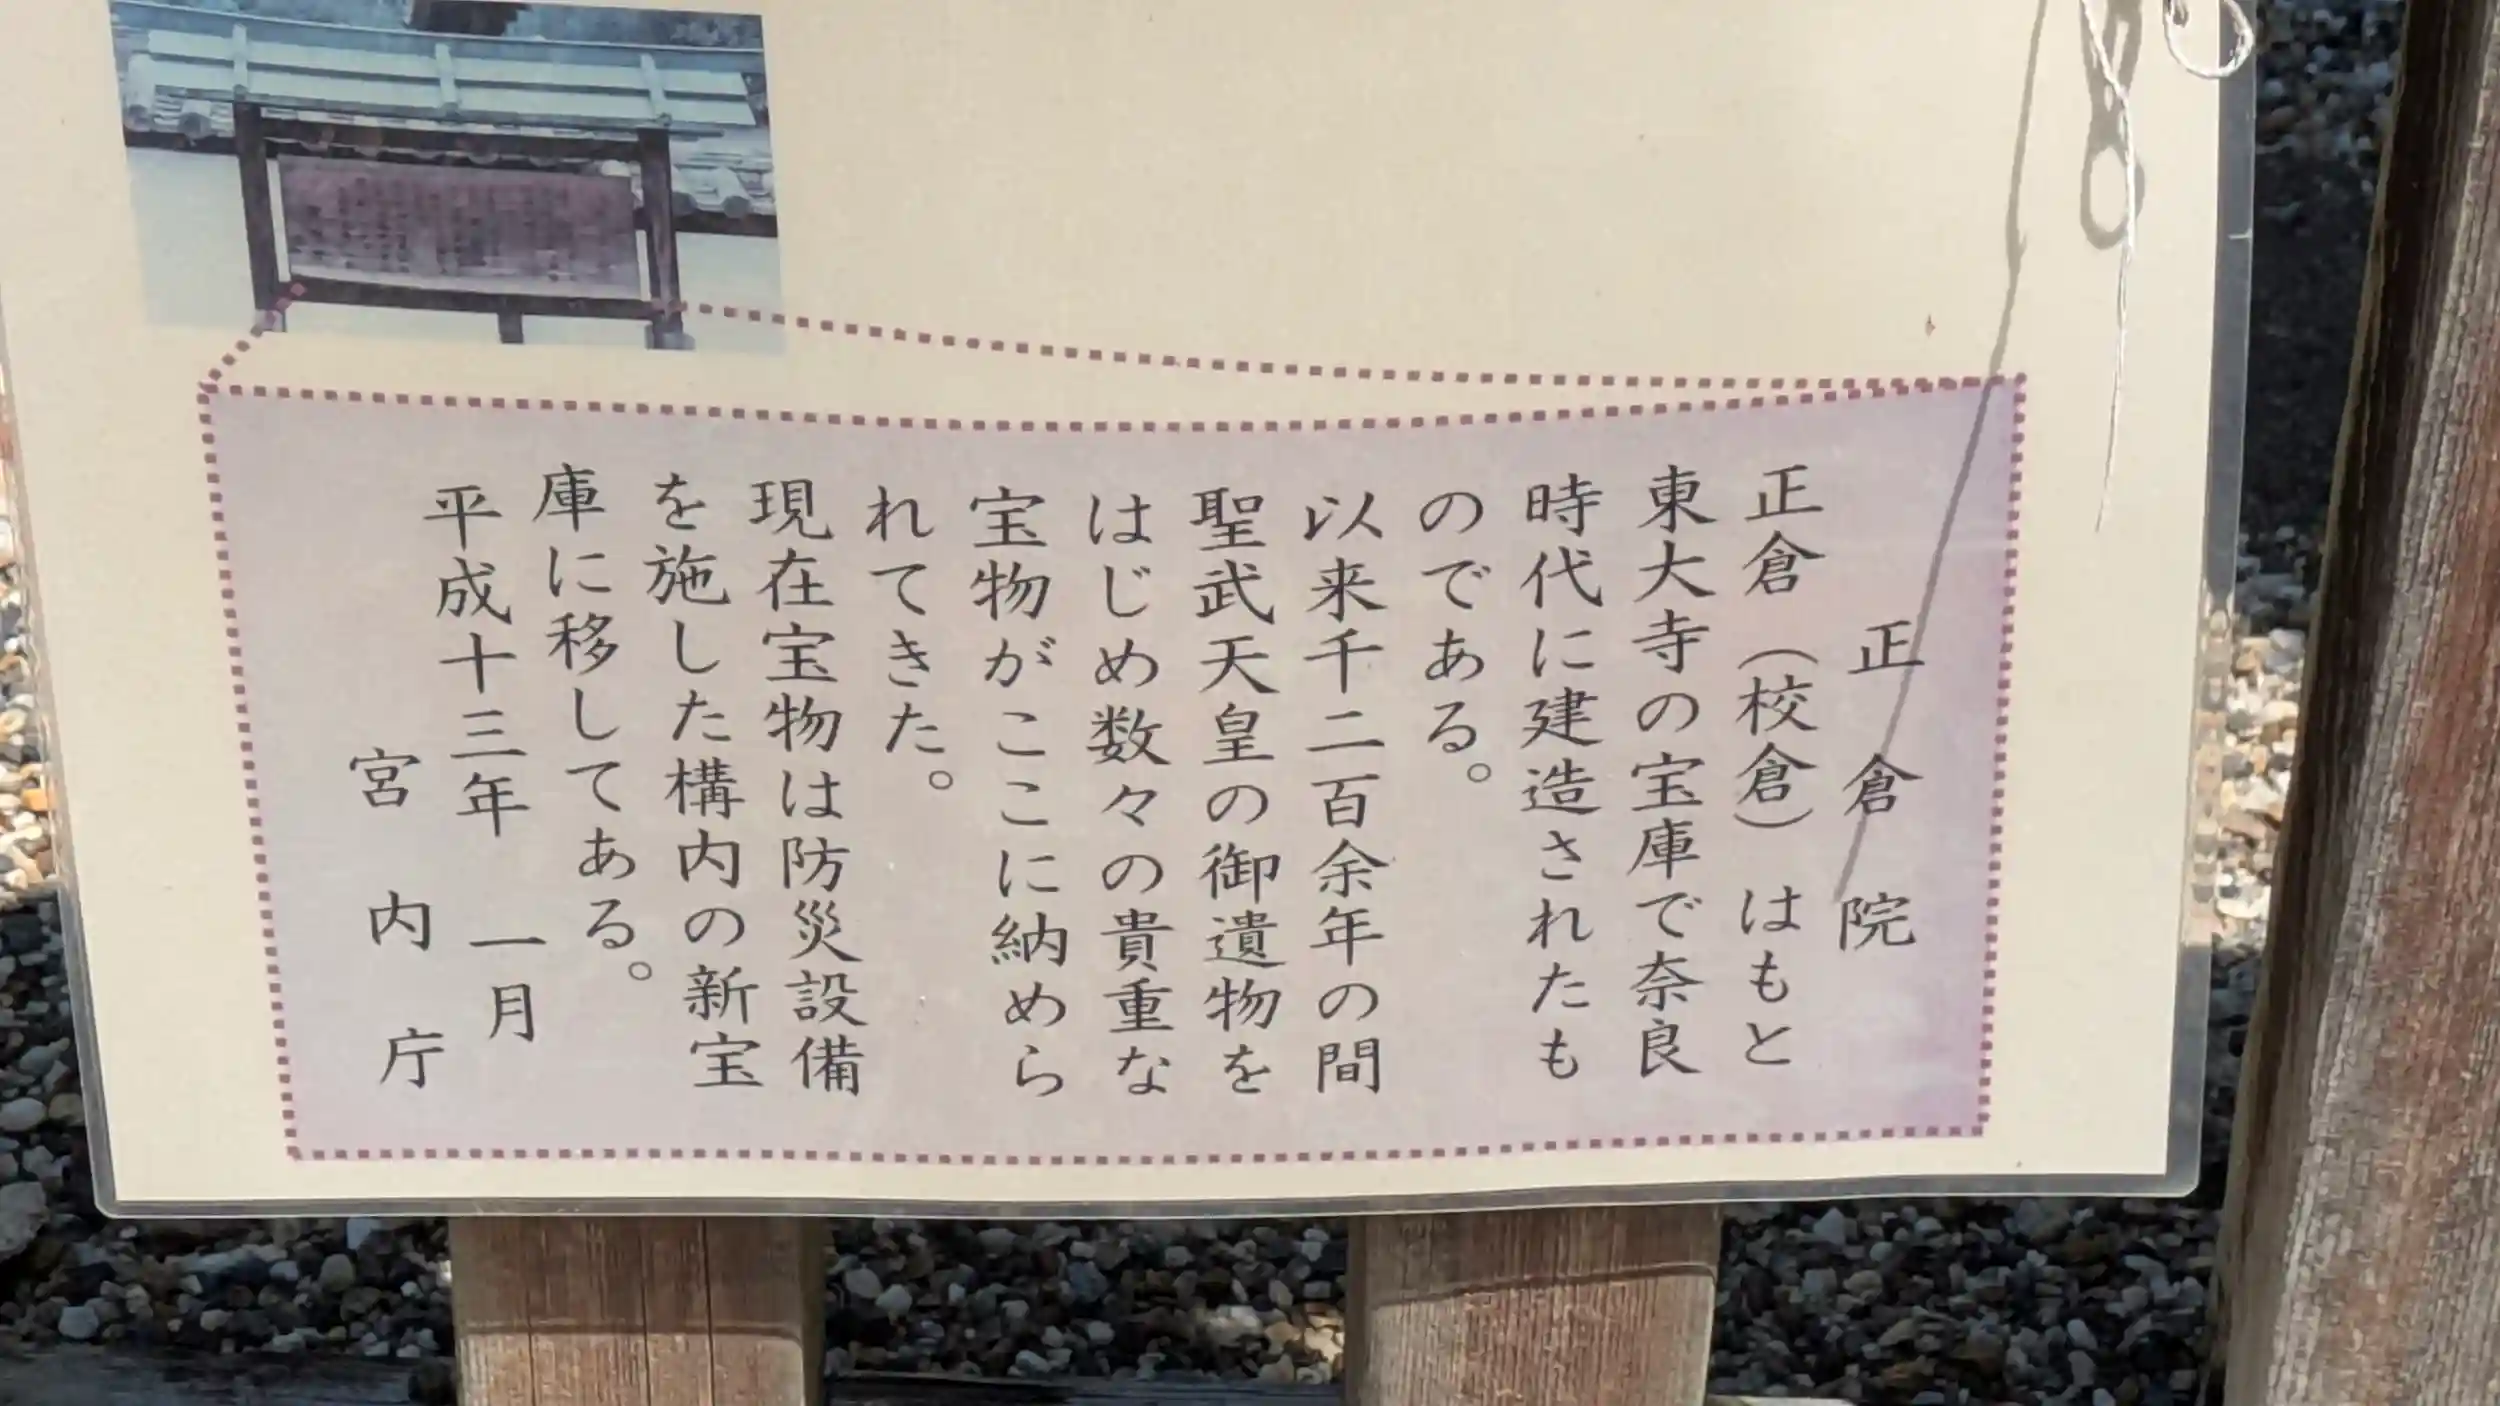 正倉院
正倉（校倉）はもと
東大寺の宝庫で奈良
時代に建造されたも
のである。
以来千二百余年の間
聖武天皇の御遺物を
はじめ数々の貴重な
宝物がここに納めら
れてきた。
現在宝物は防災設備
を施した構内の新宝
庫に移してある。
平成十三年 一月
宮内庁